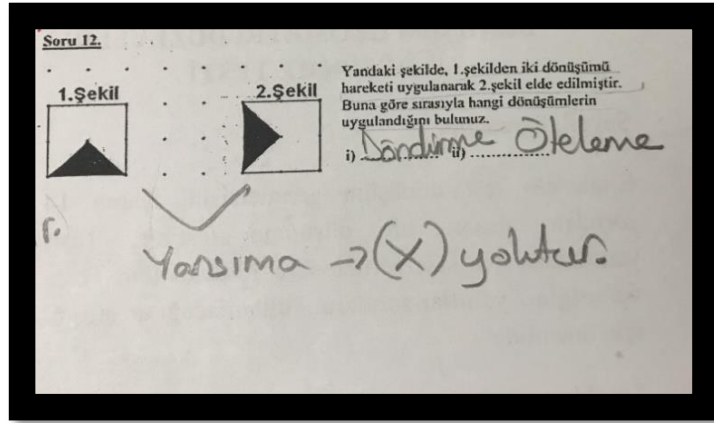 Soru 12.
1.Şekil
2.Şekil
Yandaki şekilde, 1.şekilden iki dönüşümü
hareketi uygulanarak 2.şekil elde edilmiştir.
Buna göre sırasıyla hangi dönüşümlerin
uygulandığını bulunuz.
i) Döndürme ii) Öteleme
Yansıma → (X) yoktur.